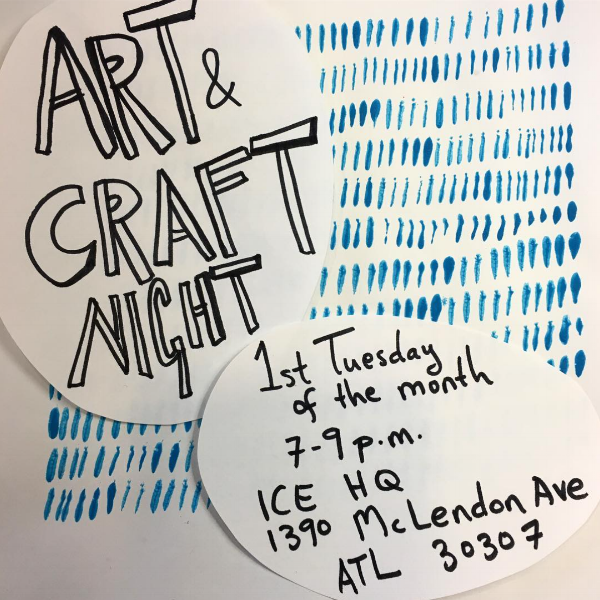 ART &
CRAFT
NIGHT
1st Tuesday
of the month
7-9 p.m.
ICE HQ
1390 McLendon Ave
ATL 30307